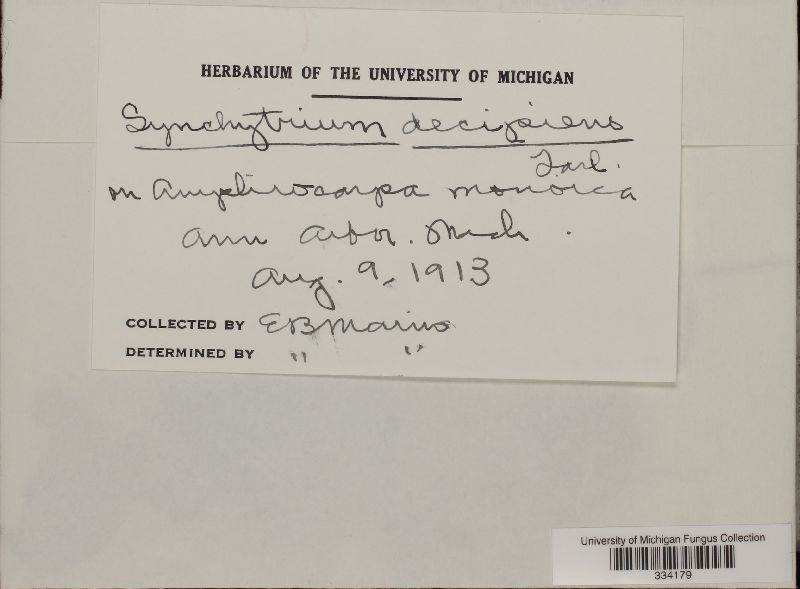 HERBARIUM OF THE UNIVERSITY OF MICHIGAN
Synchytrium decipiens
Farl.
on Amphicarpa monoica
Ann Arbor. Mich.
Aug. 9, 1913
COLLECTED BY EB Mains
DETERMINED BY " "
University of Michigan Fungus Collection
334179